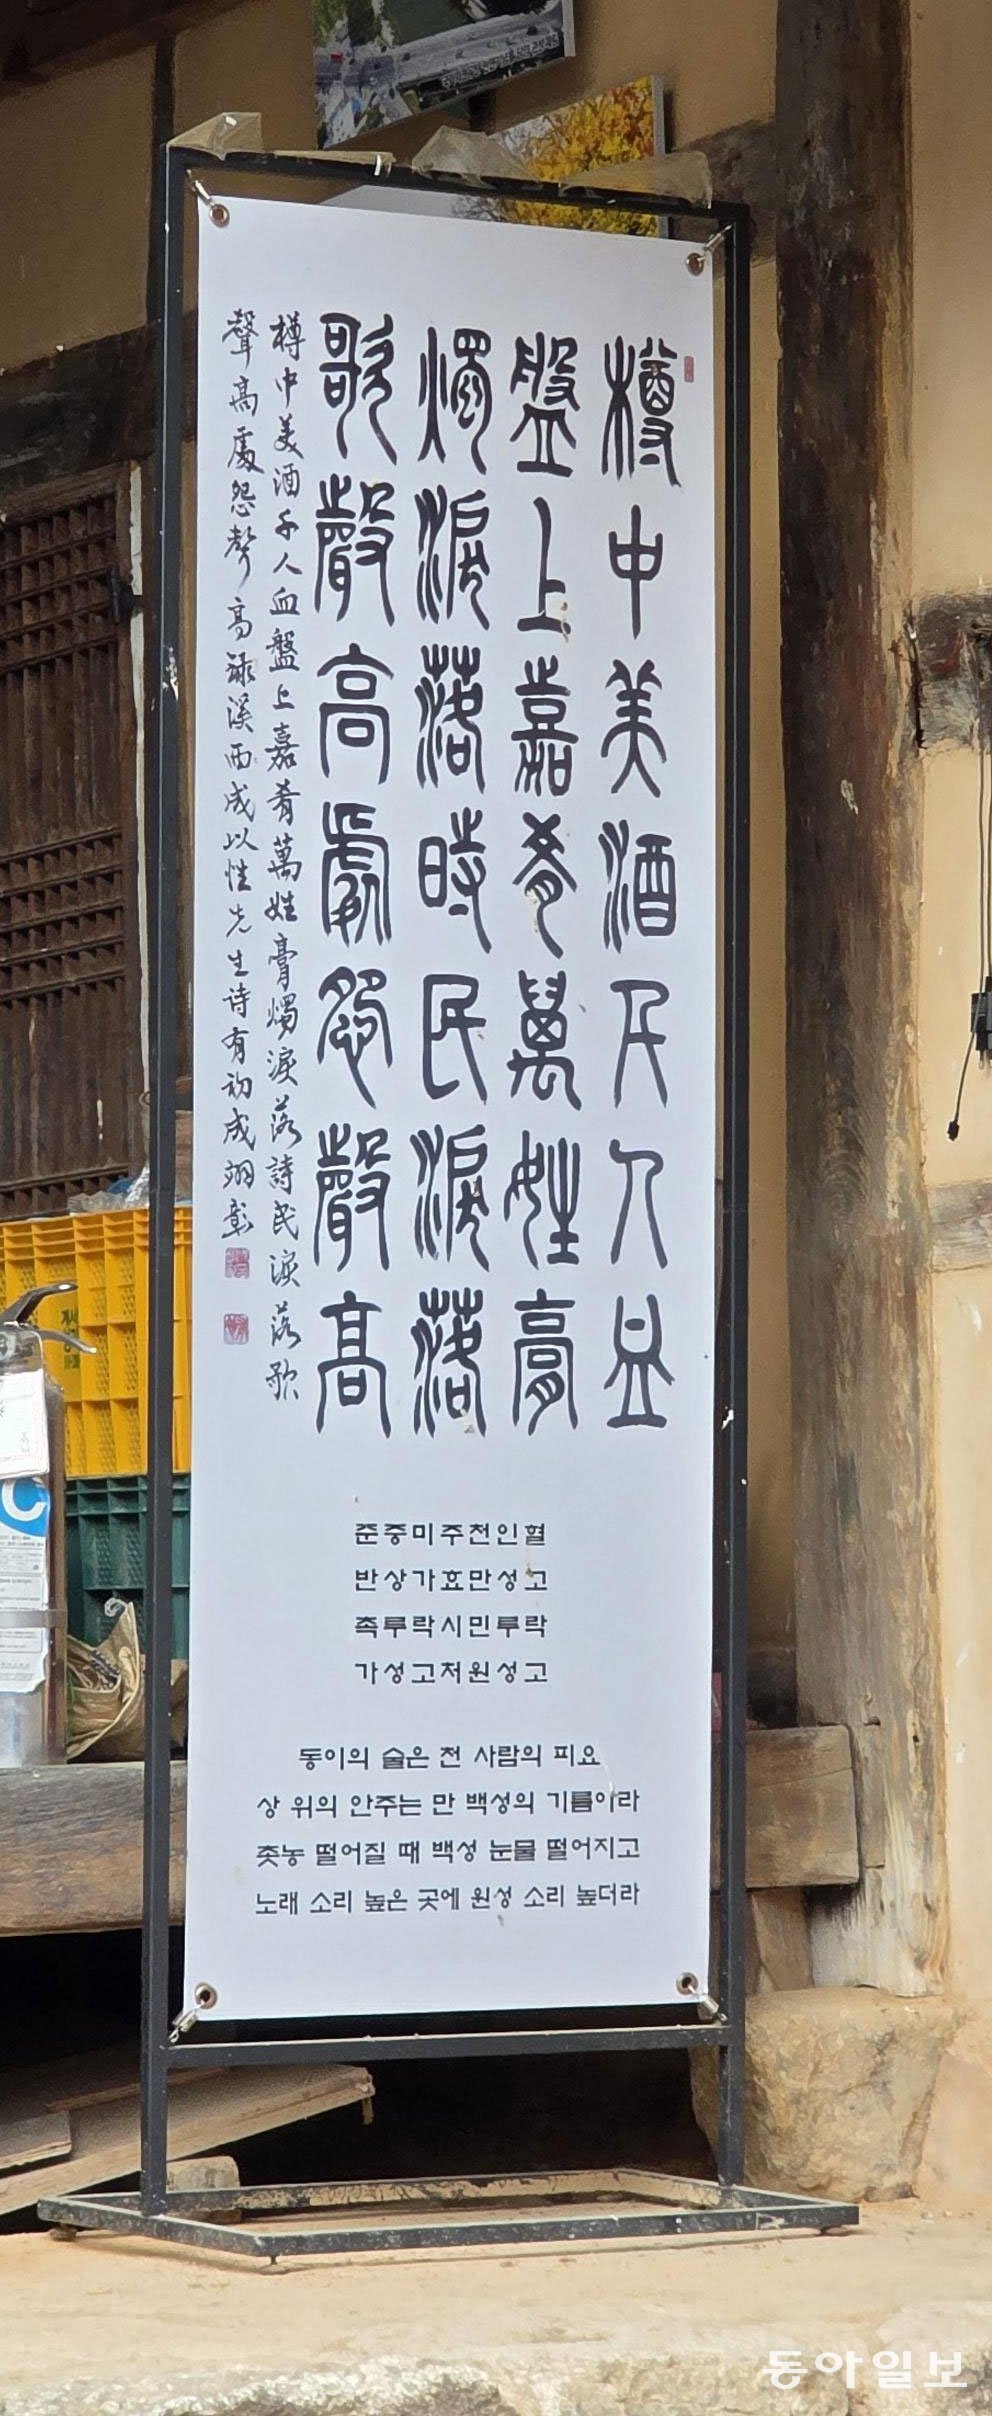 樽中美酒千人血
盤上嘉肴萬姓膏
燭淚落時民淚落
歌聲高處怨聲高
樽中美酒千人血盤上嘉肴萬姓膏燭淚落詩民淚落歌
聲高處怨聲高 溪西成以性先生诗有初成翊彰
준중미주천인혈
반상가효만성고
촉루락시민루락
가성고처원성고
동이의 술은 천 사람의 피요
상 위의 안주는 만 백성의 기름이라
촛농 떨어질 때 백성 눈물 떨어지고
노래 소리 높은 곳에 원성 소리 높더라
동아일보